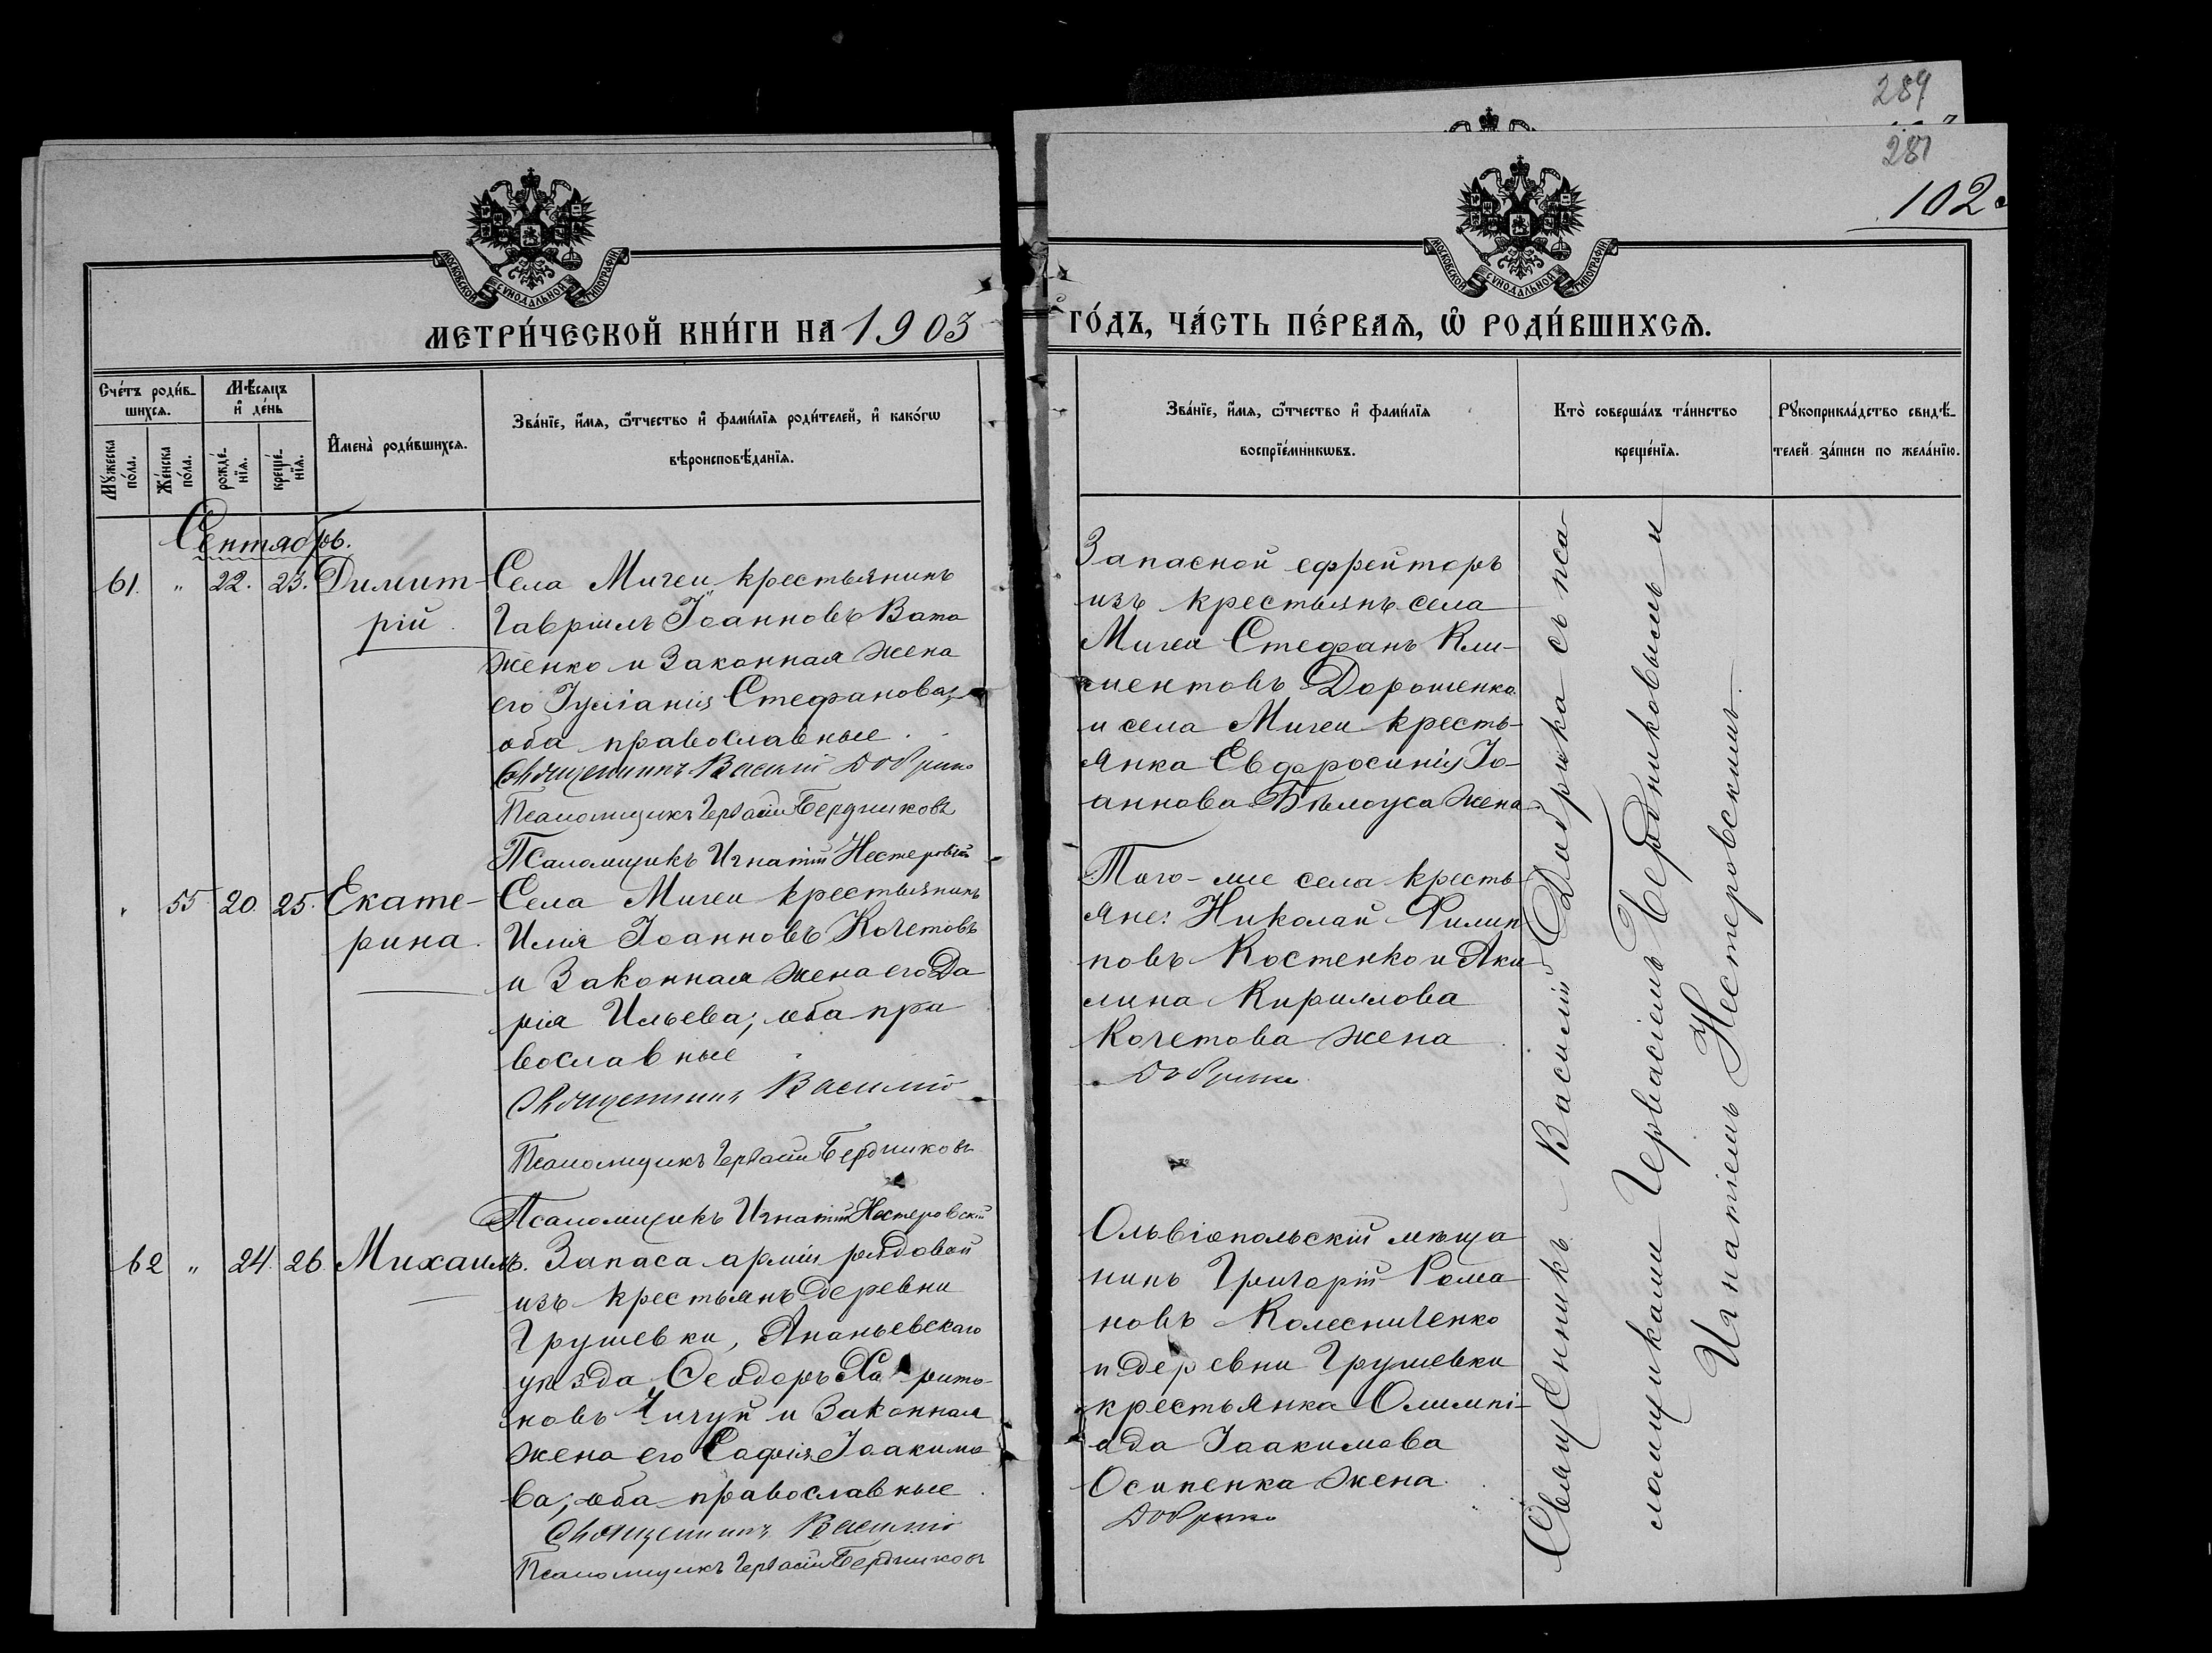 289
287
102
МОСКОВСКОЙ СѴНОДАЛЬНОЙ ТИПОГРАФІИ
МОСКОВСКОЙ СѴНОДАЛЬНОЙ ТИПОГРАФІИ
МЕТРИ́ЧЕСКОЙ КНИ́ГИ НА 1903
ГО́ДЪ, ЧА́СТЬ ПЕ́РВАѦ, Ѽ РОДИ́ВШИХСѦ.
Сче́тъ роди́в-
шихсѧ.
Мꙋ́жеска
по́ла.
Же́нска
по́ла.
Мѣ́сѧцъ
и҆ де́нь
рожде́-
нїѧ.
креще́-
нїѧ.
И҆мена̀ роди́вшихсѧ.
Зва́нїе, и҆́мѧ, ѻ҆́тчество и҆ фами́лїѧ роди́телей, и҆ како́гѡ
вѣроисповѣ́данїѧ.
Зва́нїе, и҆́мѧ, ѻ҆́тчество и҆ фами́лїѧ
воспрїе́мникѡвъ.
Кто̀ соверша́лъ та́инство
креще́нїѧ.
Рꙋкоприкла́дство свидѣ́-
телей за́писи по жела́нїю.
Сентябрь.
61. " 22. 23. Димит-
рій.
Села Мигеи крестьянинъ
Гавріилъ Іоанновъ Вата
женко и законная жена
его Іуліанія Стефанова,
оба православные.
Священникъ Василій Добрико
Псаломщикъ Гервасій Бердниковъ
Псаломщикъ Игнатій Нестеровскій
Запасной ефрейторъ
изъ крестьянъ села
Мигеи Стефанъ Кли-
ментовъ Дорошенко
и села Мигеи кресть-
янка Евфросинія Іо-
аннова Бѣлоуса жена
" 55 20. 25. Екате-
рина.
Села Мигеи крестьянинъ
Илія Іоанновъ Кочетовъ
и законная жена его Да
рія Ильева; оба пра
вославные
Священникъ Василій
Псаломщикъ Гервасій Бердниковъ
Псаломщикъ Игнатій Нестеровскій
Того-же села кресть
яне: Николай Филип
повъ Костенко и Аки
лина Кириллова
Кочетова жена
Добрико
62 " 24. 26. Михаилъ.
Запаса арміи рядовой
изъ крестьянъ деревни
Грушевки, Ананьевскаго
уѣзда Ѳеодоръ Харито
новъ Чичук и законная
жена его Софія Іоакимо
ва; оба православные.
Священникъ Василій
Псаломщикъ Гервасій Бердниковъ
Ольвіопольскій мѣща
нинъ Григорій Рома
новъ Колесниченко
и деревни Грушевки
крестьянка Олимпі-
ада Іоакимова
Осипенка жена.
Добрико
Священникъ Василій Добрика съ пса
ломщиками Гервасіемъ Бердниковымъ и
Игнатіемъ Нестеровскимъ.